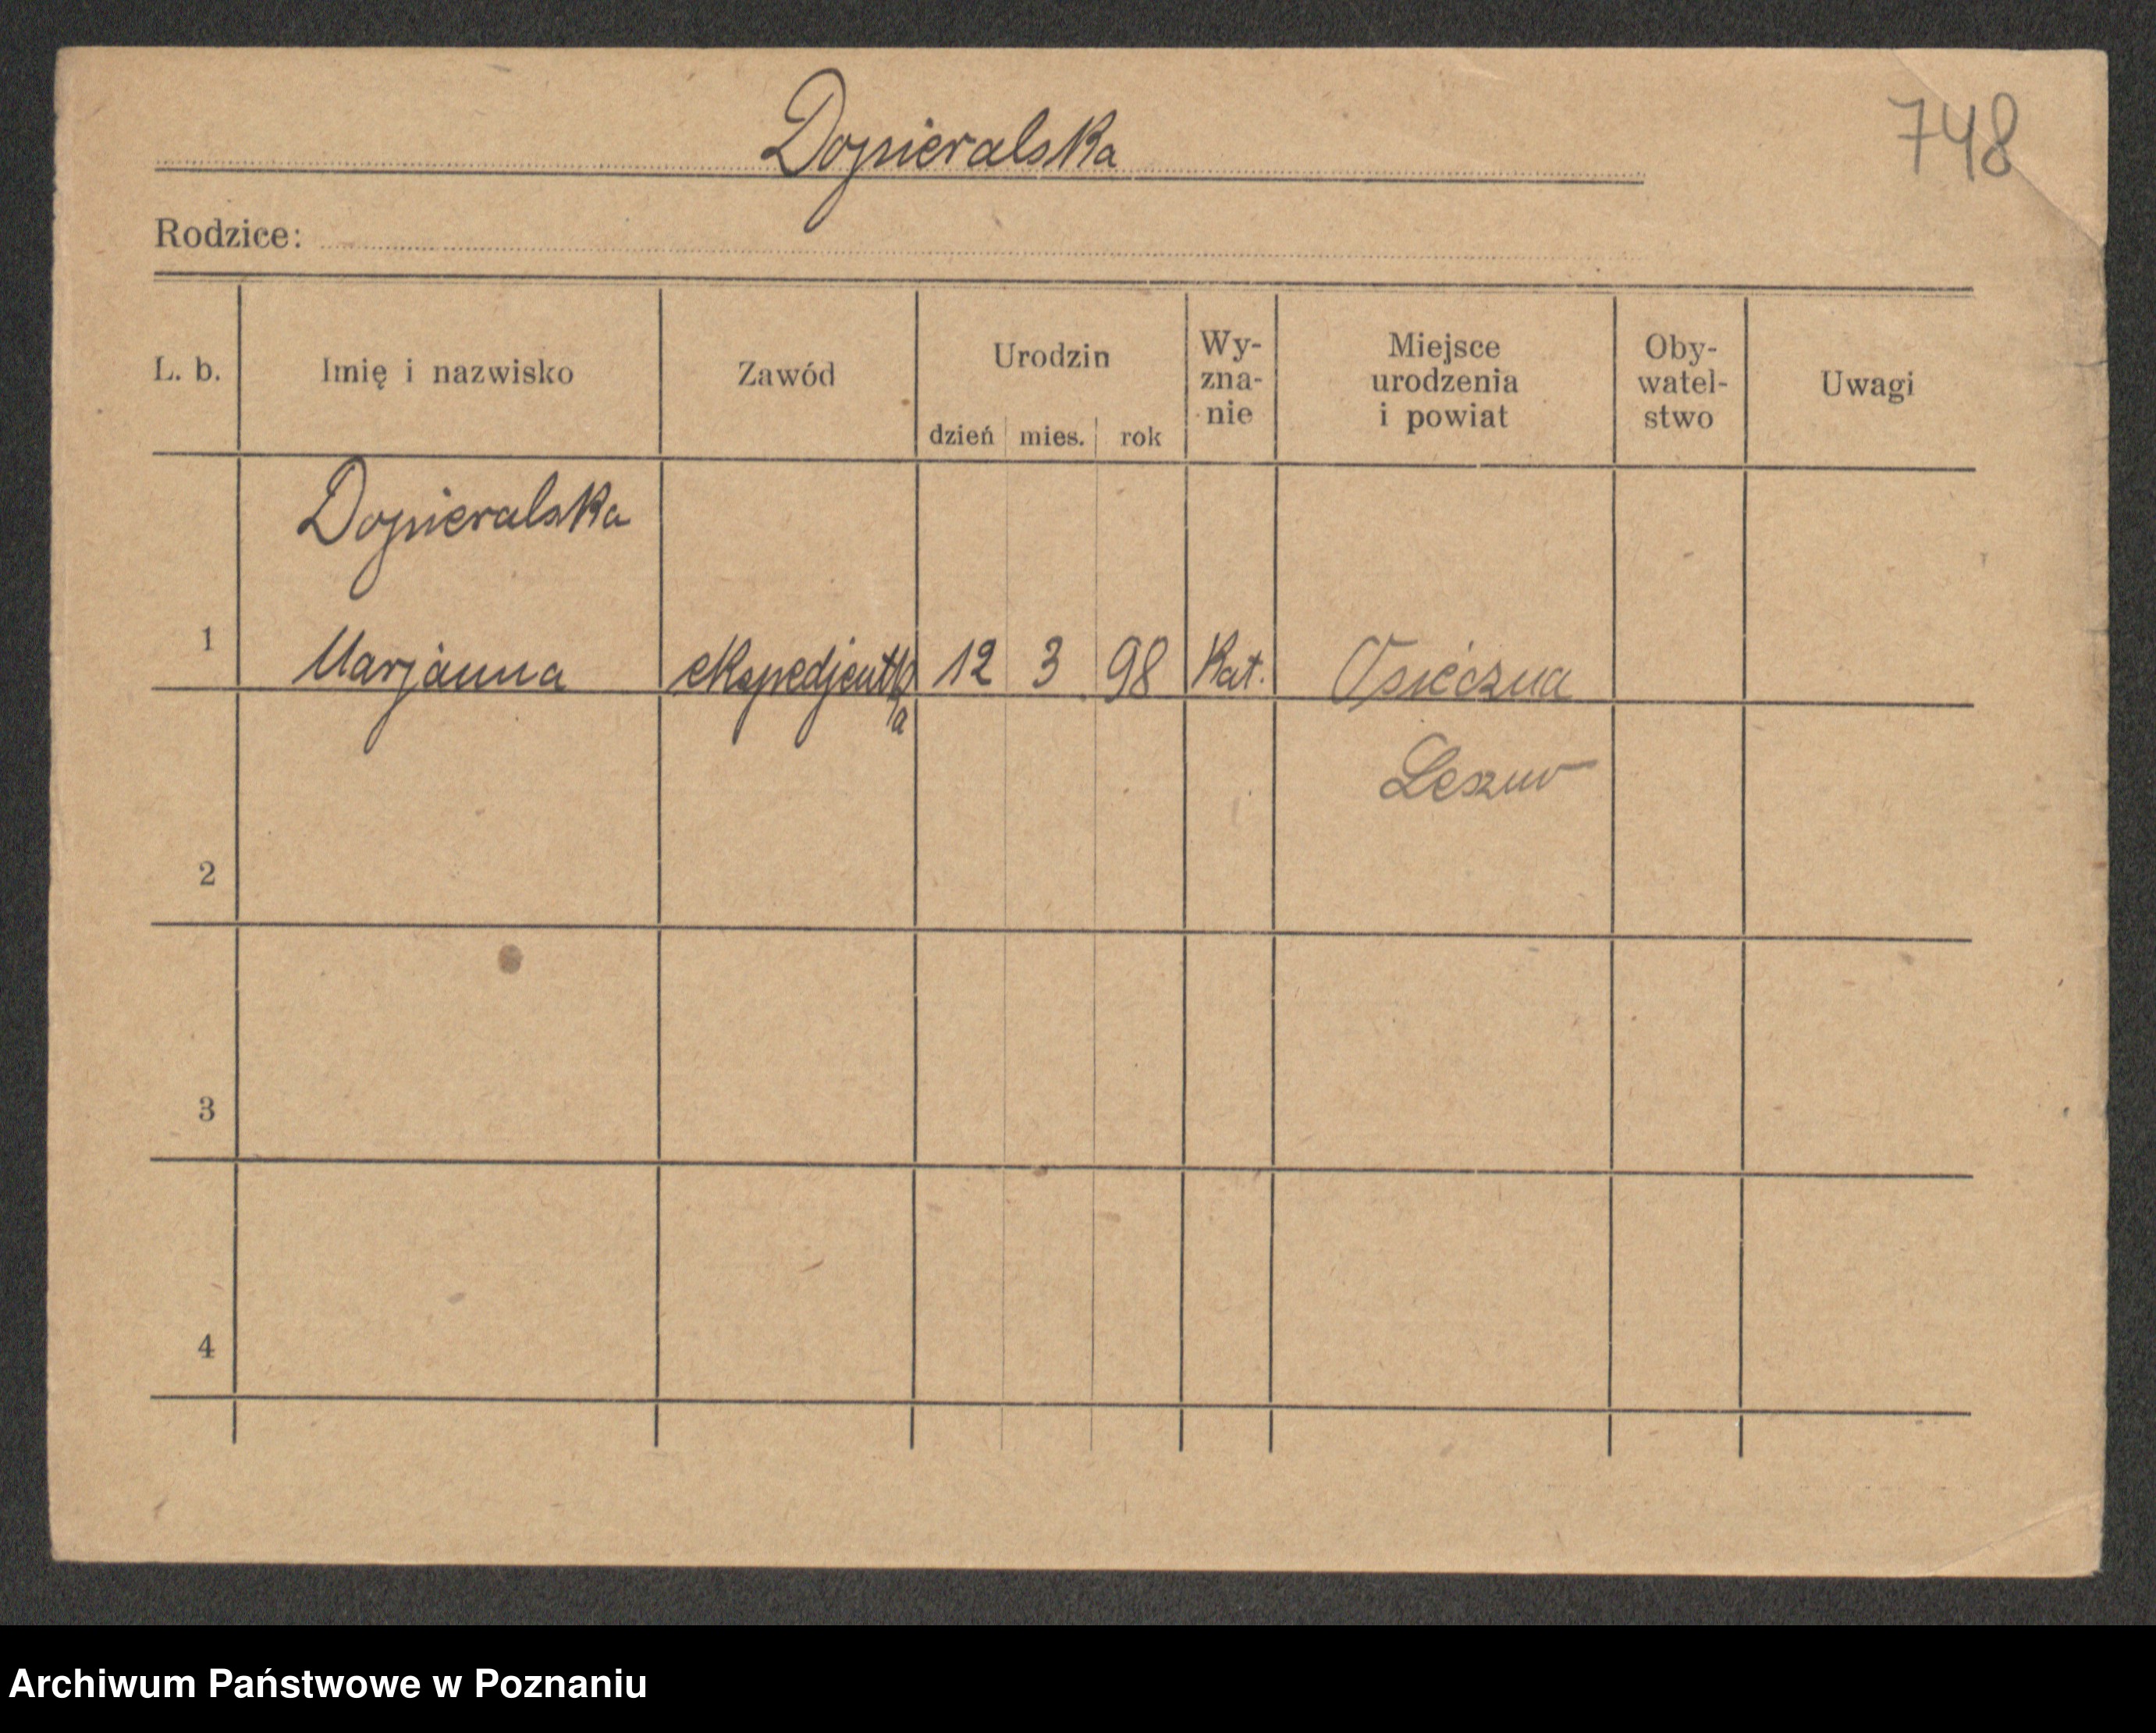 Dopieralska
748
Rodzice:
L. b.
Imię i nazwisko
Zawód
Urodzin
dzień mies. rok
Wy-
zna-
nie
Miejsce
urodzenia
i powiat
Oby-
watel-
stwo
Uwagi
Dopieralska
1 Marjanna ekspedjentka 12 3 98 Kat. Osieczna
Leszno
2
3
4
Archiwum Państwowe w Poznaniu